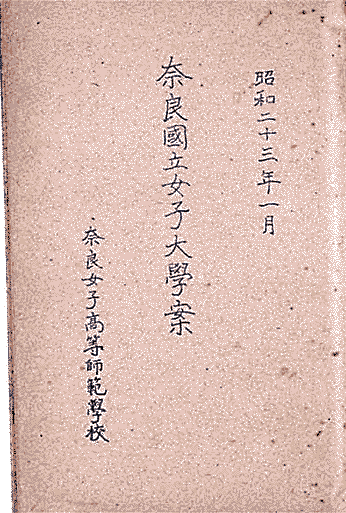 昭和二十三年一月
奈良國立女子大學案
奈良女子高等師範學校